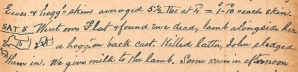 Ewes & hogg's skins averaged 5½ lbs at 4/- = 1-10 each skin.
SAT 5 Went over flat & found ewe dead, lamb alongside her
& a hogg on back cast. Killed latter, John sledged
them in. We give milk to the lamb. Some rain in afternoon